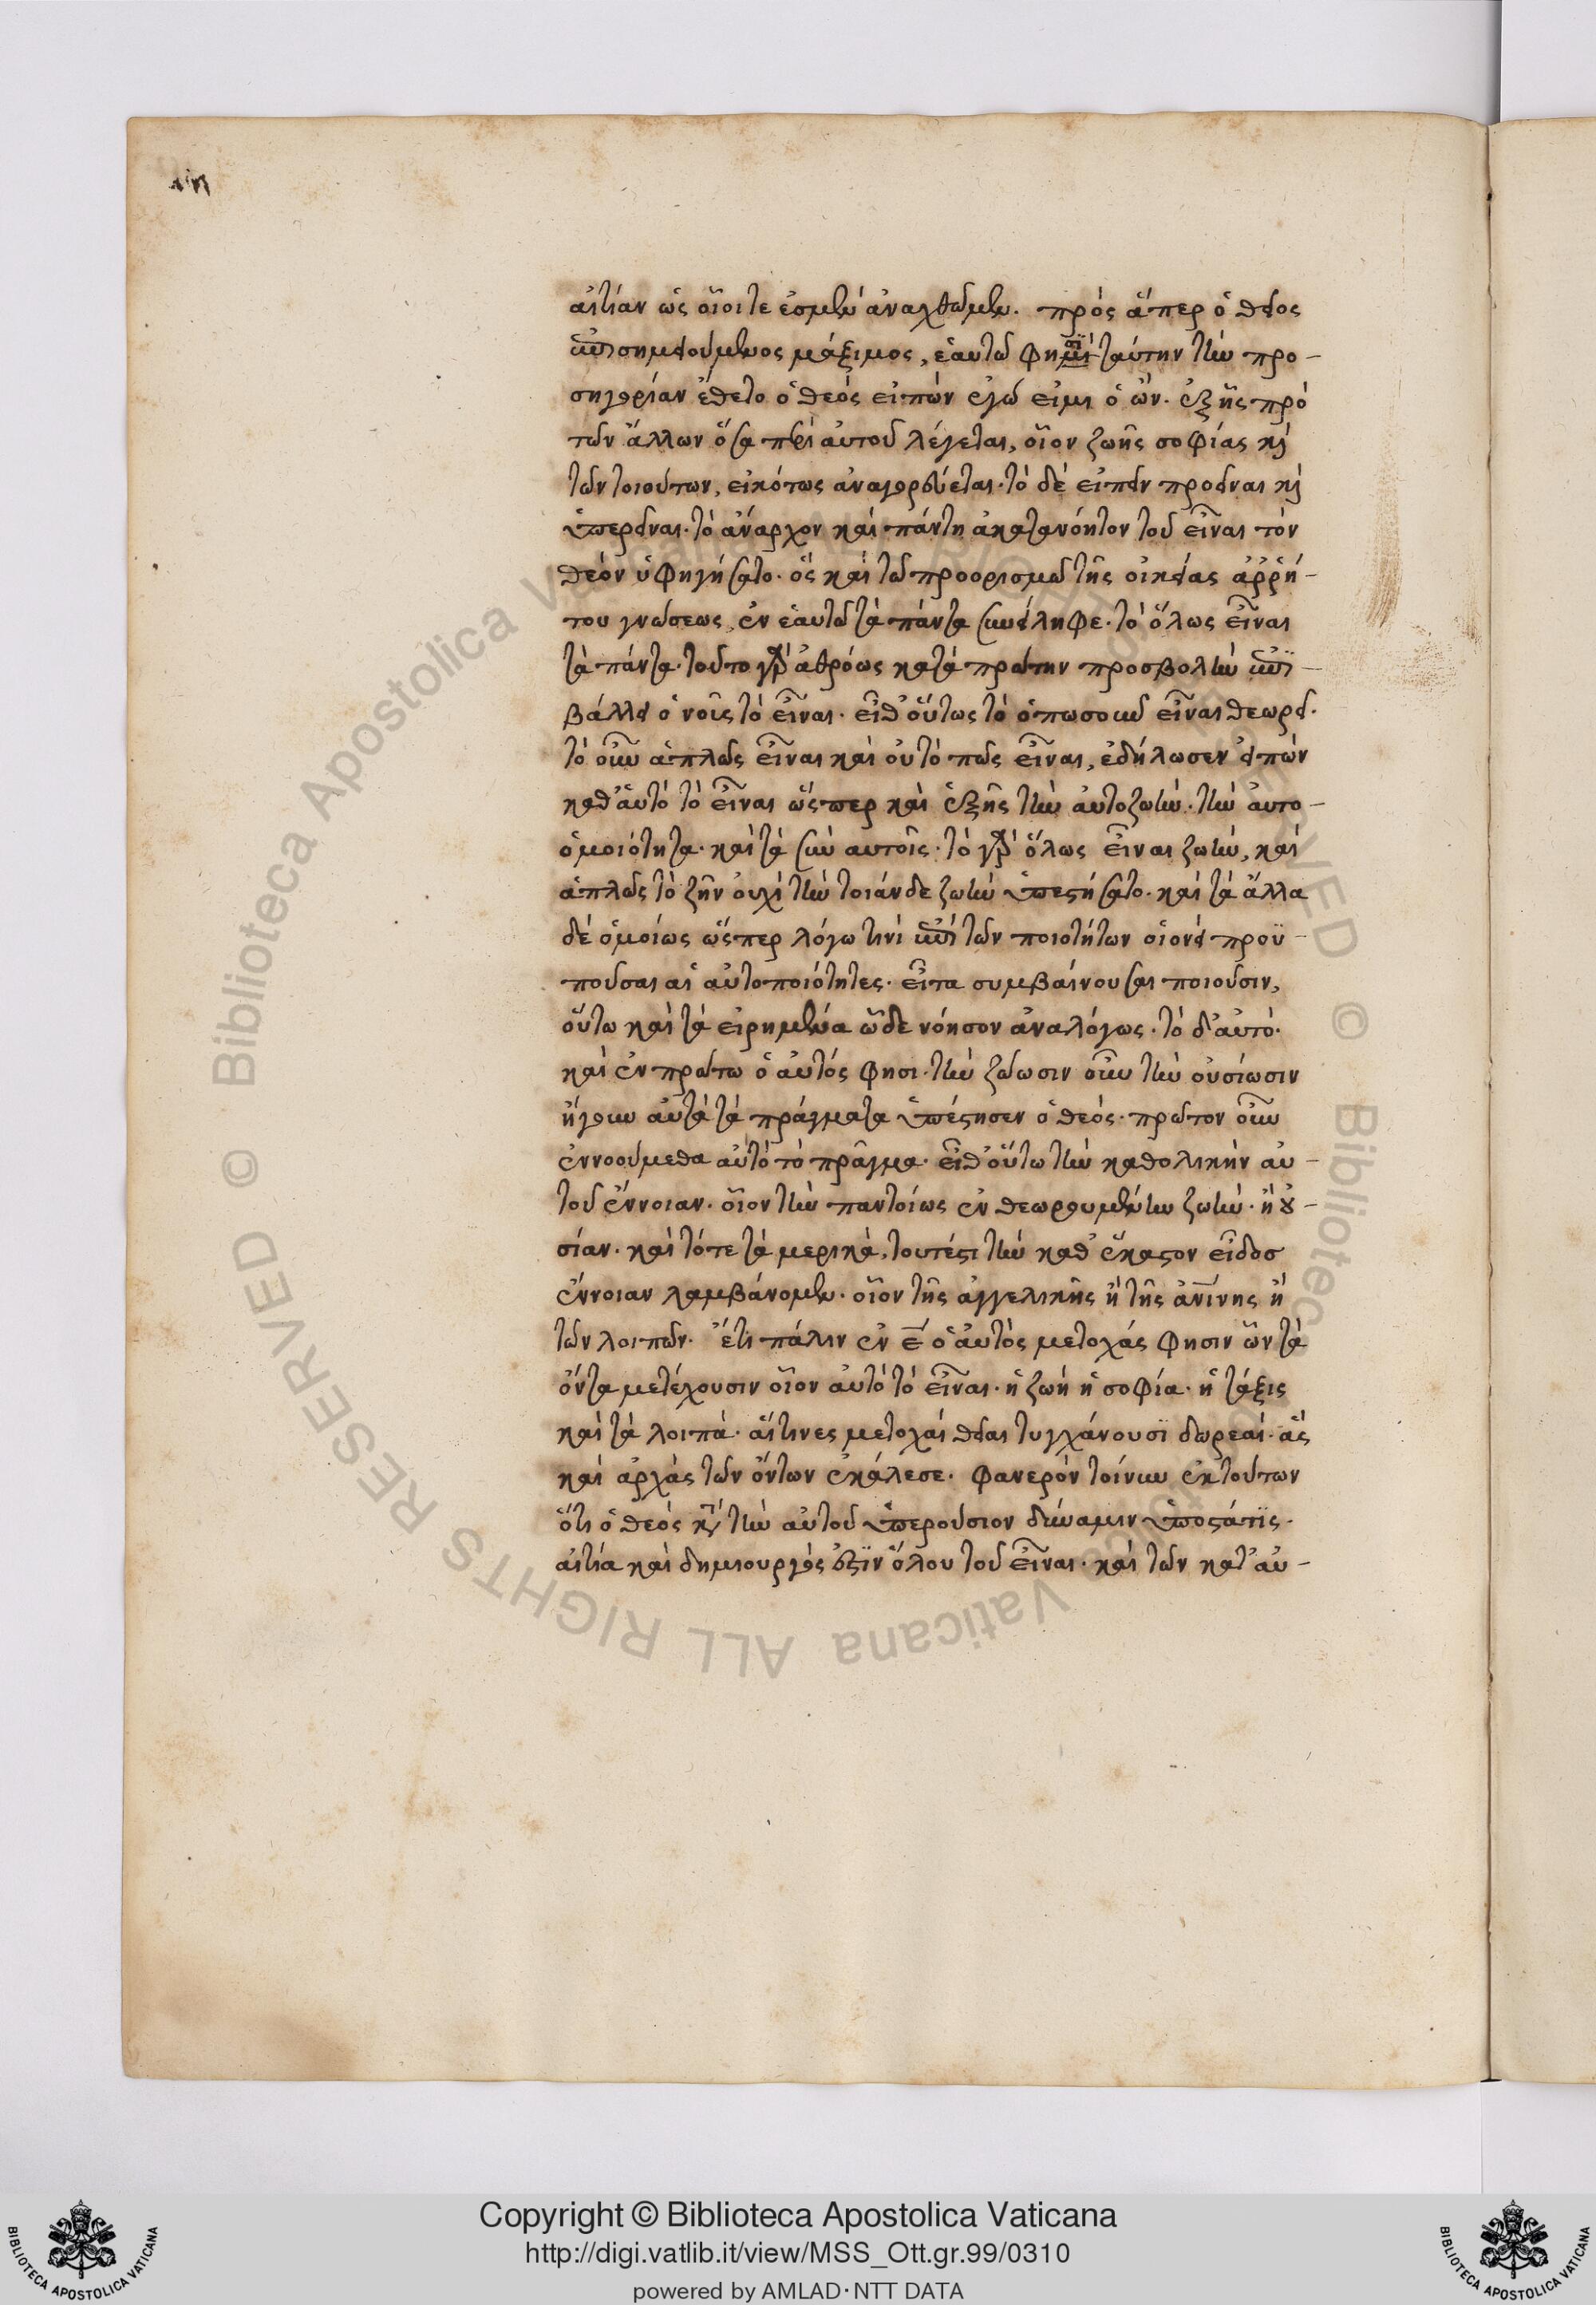 αἰτίαν ὡς οἷοί τε ἐσμὲν ἀναχθῶμεν. πρὸς ἅπερ ὁ θεῖος
ἐπισημειούμενος μάξιμος, ἑαυτῶ φησὶ ταύτην τὴν προ-
σηγορίαν ἔθετο ὁ θεὸς εἰπὼν ἐγώ εἰμι ὁ ὤν. ἑξῆς πρὸ
τῶν ἄλλων ὅσα περὶ αὐτοῦ λέγεται, οἷον ζωῆς σοφίας καὶ
τῶν τοιούτων, εἰκότως ἀναγορεύεται. τὸ δὲ εἰπεῖν προεῖναι καὶ
ὑπερεῖναι. τὸ ἄναρχον καὶ πάντη ἀκατανόητον τοῦ εἶναι τὸν
θεὸν ὑφηγήσατο. ὃς καὶ τῶ προορισμῶ τῆς οἰκείας ἀῤῥή-
του γνώσεως, ἐν ἑαυτῶ τὰ πάντα συνείληφε. τὸ ὅλως εἶναι
τὰ πάντα. τοῦτο γὰρ ἀθρόως κατὰ πρώτην προσβολὴν ἐπι-
βάλλει ὁ νοῦς τὸ εἶναι. εἶθ' οὕτως τὸ ὁπωσοῦν εἶναι θεωρεῖ.
τὸ οὖν ἁπλῶς εἶναι καὶ οὐ τὸ πῶς εἶναι, ἐδήλωσεν εἰπὼν
καθ' αὑτὸ τὸ εἶναι ὥσπερ καὶ ἑξῆς τὴν αὐτοζωὴν. τὴν αὐτο-
ὁμοιότητα. καὶ τὰ σὺν αὐτοῖς. τὸ γὰρ ὅλως εἶναι ζωὴν, καὶ
ἁπλῶς τὸ ζῆν οὐχὶ τὴν τοιάνδε ζωὴν ὑπεστήσατο. καὶ τὰ ἄλλα
δὲ ὁμοίως ὥσπερ λόγω τινὶ ἐπὶ τῶν ποιοτήτων οἱονεὶ προϋ-
ποῦσαι αἱ αὐτοποιότητες. εἶτα συμβαίνουσαι ποιοῦσιν,
οὕτω καὶ τὰ εἰρημένα ὧδε νόησον ἀναλόγως. τὸ δ' αὐτὸ.
καὶ ἐν πρώτω ὁ αὐτός φησι. τὴν ζώωσιν οὖν τὴν οὐσίωσιν
ἤγουν αὐτὰ τὰ πράγματα ὑπέστησεν ὁ θεός. πρῶτον οὖν
ἐννοούμεθα αὐτὸ τὸ πρᾶγμα. εἶθ' οὕτω τὴν καθολικὴν αὐ-
τοῦ ἔννοιαν. οἷον τὴν παντοίως ἐν θεωρουμένην ζωὴν. ἢ οὐ-
σίαν. καὶ τότε τὰ μερικὰ, τουτέστι τὴν καθ' ἕκαστον εἶδοσ
ἔννοιαν λαμβάνομεν. οἷον τῆς ἀγγελικῆς ἢ τῆς ἀνίνης ἢ
τῶν λοιπῶν. ἔτι πάλιν ἐν ε ὁ αὐτὸς μετοχάς φησιν ὧν τὰ
ὄντα μετέχουσιν οἷον αὐτὸ τὸ εἶναι. ἡ ζωὴ ἡ σοφία. ἡ τάξις
καὶ τὰ λοιπὰ. αἵτινες μετοχαὶ θεῖαι τυγχάνουσϊ δωρεαὶ. ἃς
καὶ ἀρχὰς τῶν ὄντων ἐκάλεσε. φανερὸν τοίνυν ἐκ τούτων
ὅτι ὁ θεὸς κατὰ τὴν αὐτοῦ ὑπερούσιον δύναμιν ὑποστάτϊς.
αἰτία καὶ δημιουργός ἐστϊν ὅλου τοῦ εἶναι. καὶ τῶν κατ' αὐ-
Copyright © Biblioteca Apostolica Vaticana
http://digi.vatlib.it/view/MSS_Ott.gr.99/0310
powered by AMLAD·NTT DATA